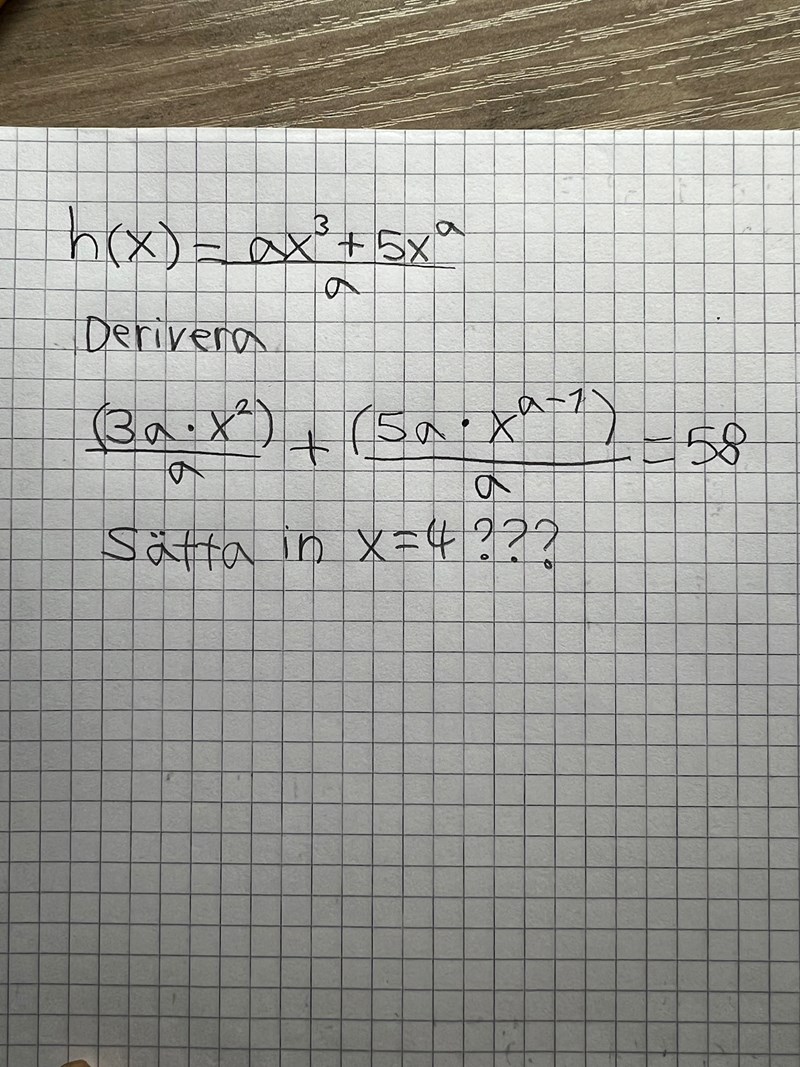 h(x) = (ax³ + 5xᵃ)/a
Derivera
(3a · x²)/a + (5a · xᵃ⁻¹)/a = 58
Sätta in x=4???